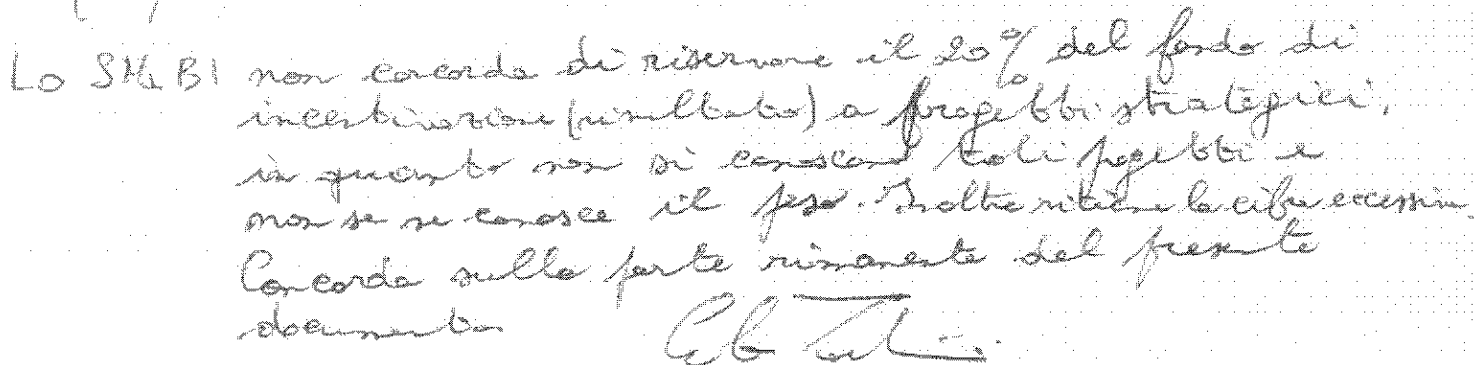 Lo SMI BI non cocorda di riservare il 20% del fondo di
incentivazione (risultato) a progetti strategici,
in quanto non si conoscono tali pogetti e
non se ne conosce il peso. Inoltre ritiene la cifra eccessiva.
Concorda sulla parte rimanente del presente
documento